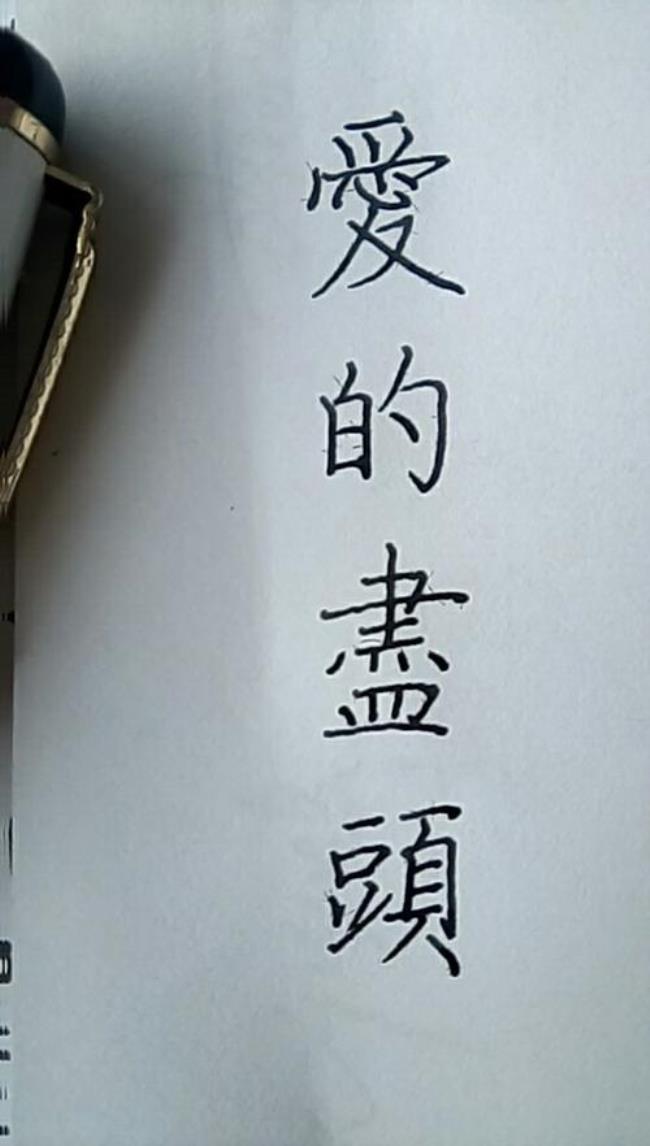 愛的盡頭